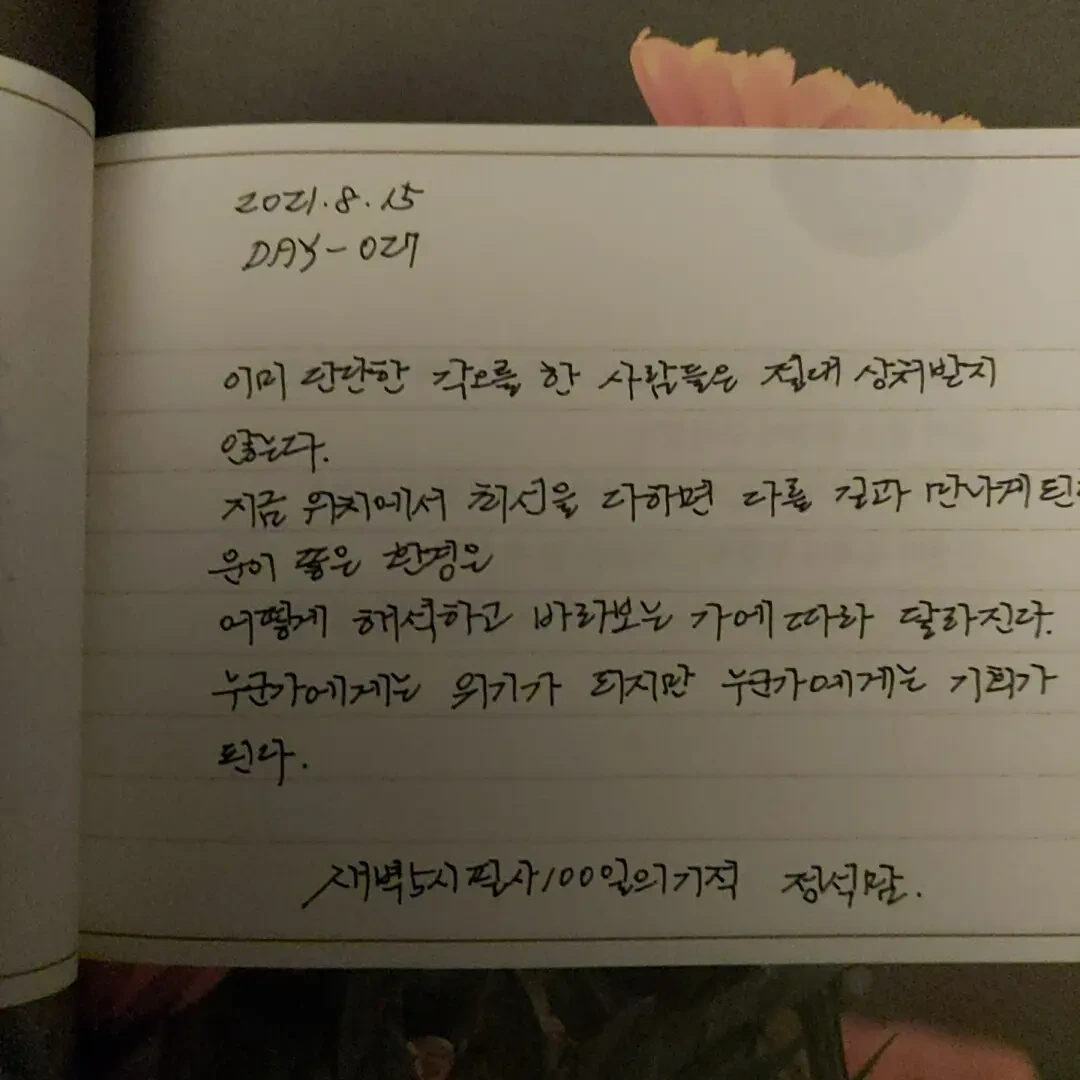 2021.8.15
DAY-027
이미 단단한 각오를 한 사람들은 절대 상처받지
않는다.
지금 위치에서 최선을 다하면 다를 결과 만나게 된다
운이 좋은 환경은
어떻게 해석하고 바라보는 가에 따라 달라진다.
누군가에게는 위기가 되지만 누군가에게는 기회가
된다.
새벽5시필사100일의기적 정석맘.